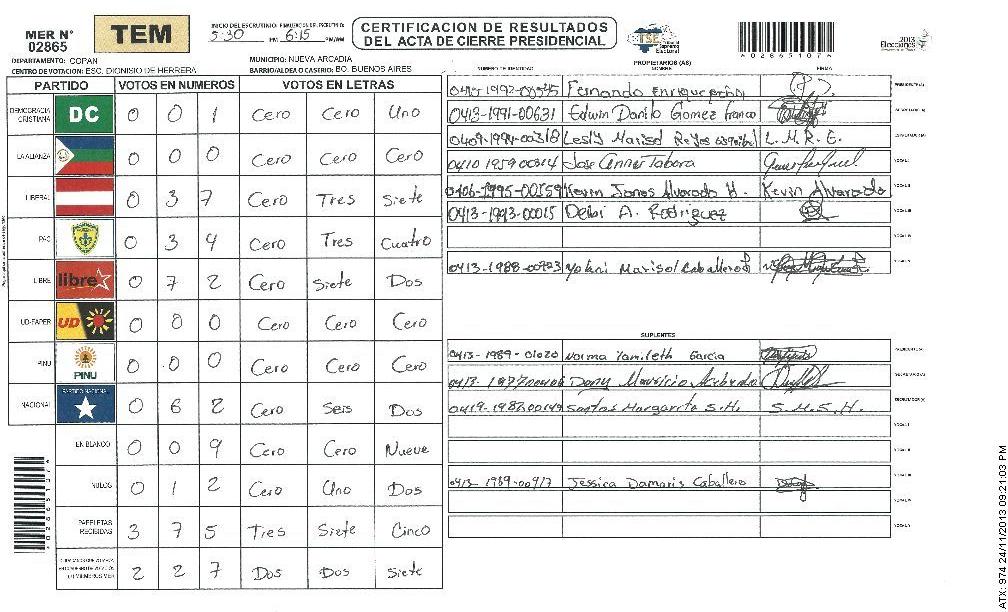 MER N°
02865
TEM
INICIO DEL ESCRUTINIO: FINALIZACION DEL ESCRUTINIO:
5:30 PM 6:15
CERTIFICACION DE RESULTADOS
DEL ACTA DE CIERRE PRESIDENCIAL
TSE Tribunal Supremo Electoral
A02865107A
2013
Elecciones
DEPARTAMENTO: COPAN
MUNICIPIO: NUEVA ARCADIA
CENTRO DE VOTACION: ESC. DIONISIO DE HERRERA
BARRIO/ALDEA O CASERIO: BO. BUENOS AIRES
PROPIETARIOS (AS)
NUMERO DE IDENTIDAD NOMBRE FIRMA
PARTIDO VOTOS EN NUMEROS VOTOS EN LETRAS
DEMOCRACIA CRISTIANA DC 0 0 1 Cero Cero Uno
LA ALIANZA 0 0 0 Cero Cero Cero
LIBERAL 0 3 7 Cero Tres Siete
PAC 0 3 4 Cero Tres Cuatro
LIBRE libre 0 7 2 Cero Siete Dos
UD-FAPER UD 0 0 0 Cero Cero Cero
PINU PINU 0 0 0 Cero Cero Cero
NACIONAL PARTIDO NACIONAL 0 6 2 Cero Seis Dos
EN BLANCO 0 0 9 Cero Cero Nueve
NULOS 0 1 2 Cero Uno Dos
PAPELETAS RECIBIDAS 3 7 5 Tres Siete Cinco
2 2 7 Dos Dos Siete
Fernando Enrique
0413-1991-00631 Edwin Danilo Gomez franco
Lesly Marisol Reyes L.M.R.E.
0410 1959 00314 Jose Tabora
0406-1995-00159 Kevin Jonas Alvarado H. Kevin Alvarado
0413-1993-00015 Delbi A. Rodriguez
0413-1988-00923 Marisol Caballero
SUPLENTES
0413-1989-01020 Norma Yamileth Garcia
Dany Mauricio
0419-1982-00149 Santos Margarita S.H. S.M.S.H.
0413-1989-00917 Jessica Damaris Caballero
ATX: 974 24/11/2013 09:21:03 PM